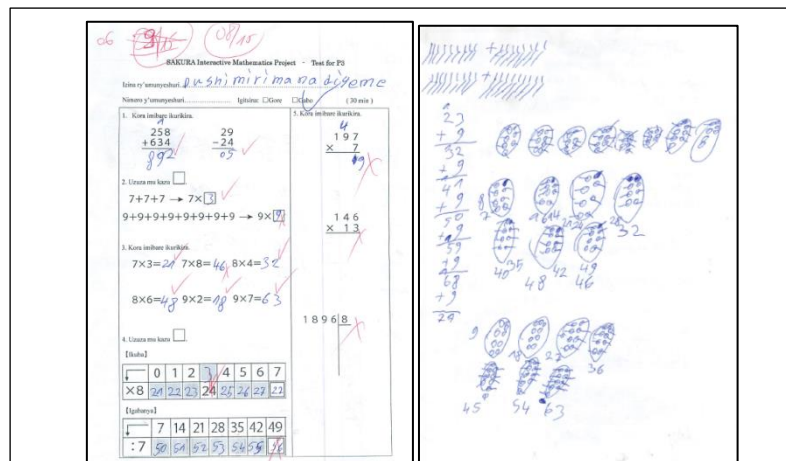 06 9/15 08/15
SAKURA Interactive Mathematics Project - Test for P3
Izina ry'umunyeshuri
Nimero y'umunyeshuri Igitsina: □Gore □Gabo (30 min)
1. Kora imibare ikurikira.
258 29
+634 −24
892 05
2. Uzuza mu kazu □
7+7+7 → 7×3
9+9+9+9+9+9+9+9 → 9×
3. Kora imibare ikurikira.
7×3=21 7×8=46 8×4=32
8×6=48 9×2=18 9×7=63
4. Uzuza mu kazu □.
【Ikuba】
0 1 2 3 4 5 6 7
×8 21 22 23 24 25 26 27 22
【Igabanya】
7 14 21 28 35 42 49
:7 50 51 52 53 54 55 56
5. Kora imibare ikurikira.
4
197
× 7
9
146
× 13
1896 8
23
+ 9
32
+ 9
41
+ 9
50
+ 9
59
+9
68
+ 9
8
32
40 35
48 42
49
46
9
18
27
36
45 54 63